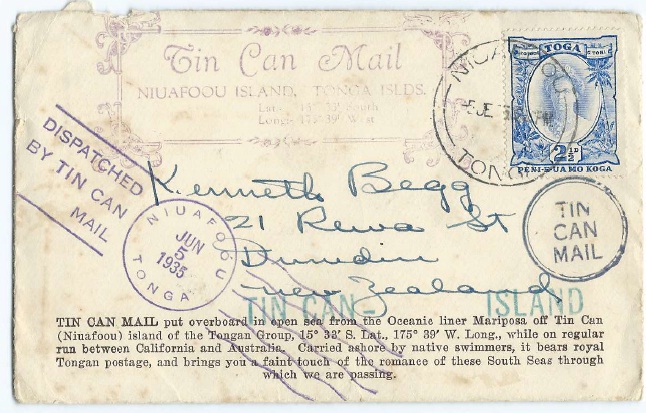 Tin Can Mail
NIUAFOOU ISLAND, TONGA ISLDS.
Lat. 15° 33' South
Long. 175° 39' West
TOGA
2½
PENI-E-UA MO KOGA
NIUAFOOU
TONGA
DISPATCHED
BY TIN CAN
MAIL
Kenneth Begg
21 Rewa St
Dunedin
New Zealand
NIUAFOOU
JUN
5
1935
TONGA
TIN
CAN
MAIL
TIN CAN - ISLAND
TIN CAN MAIL put overboard in open sea from the Oceanic liner Mariposa off Tin Can
(Niuafoou) island of the Tongan Group, 15° 33' S. Lat., 175° 39' W. Long., while on regular
run between California and Australia. Carried ashore by native swimmers, it bears royal
Tongan postage, and brings you a faint touch of the romance of these South Seas through
which we are passing.